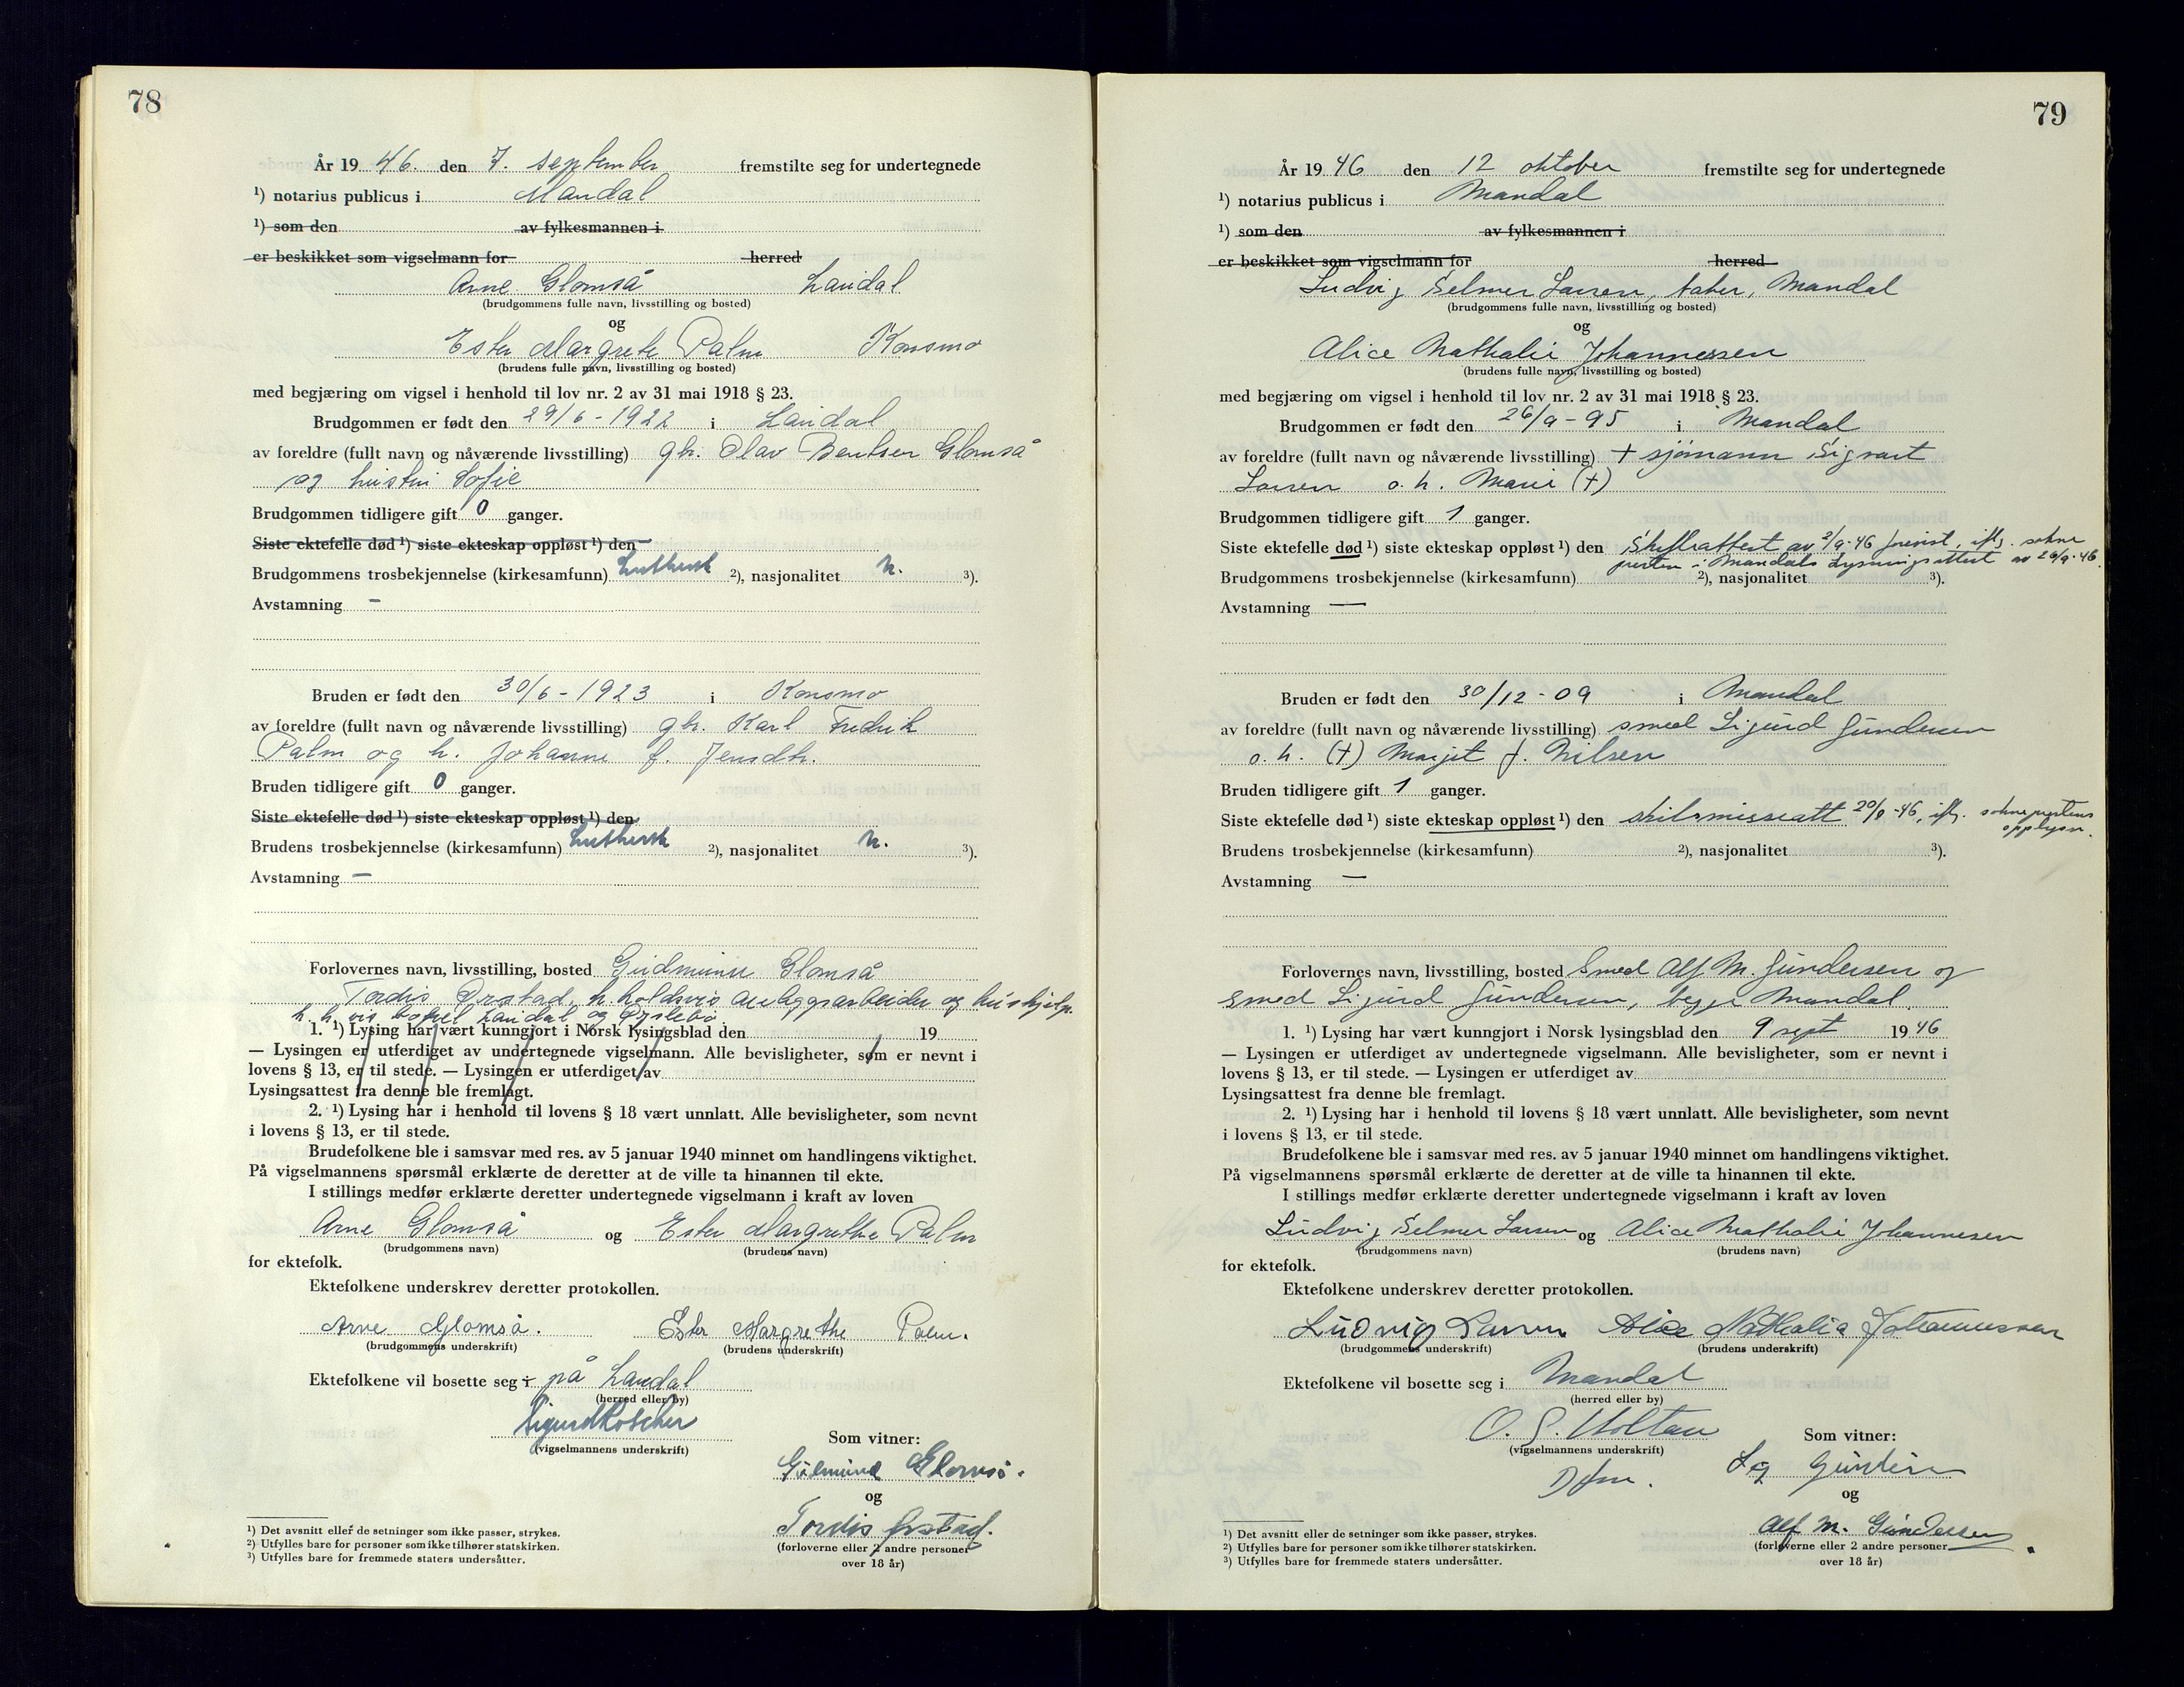 78
År 1946. den 7. september fremstilte seg for undertegnede
¹) notarius publicus i Mandal
¹) som den av fylkesmannen i
er beskikket som vigselmann for herred
Arne Glomså Laudal
(brudgommens fulle navn, livsstilling og bosted)
og
Ester Margrete Palm Konsmo
(brudens fulle navn, livsstilling og bosted)
med begjæring om vigsel i henhold til lov nr. 2 av 31 mai 1918 § 23.
Brudgommen er født den 29/6 - 1922 i Laudal
av foreldre (fullt navn og nåværende livsstilling) gbr. Olav Bentsen Glomså
og hustru Sofie
Brudgommen tidligere gift 0 ganger.
Siste ektefelle død ¹) siste ekteskap oppløst ¹) den
Brudgommens trosbekjennelse (kirkesamfunn) Luthersk ²), nasjonalitet n. ³).
Avstamning —
Bruden er født den 30/6 - 1923 i Konsmo
av foreldre (fullt navn og nåværende livsstilling) gbr. Karl Fredrik
Palm og h. Johanne f. Jensdtr.
Bruden tidligere gift 0 ganger.
Siste ektefelle død ¹) siste ekteskap oppløst ¹) den
Brudens trosbekjennelse (kirkesamfunn) Luthersk ²), nasjonalitet n. ³).
Avstamning —
Forlovernes navn, livsstilling, bosted Gudmunn Glomså
Tordis Ørstad, h. holdsvis anleggsarbeider og hushjelp.
h. h. vis bopel Laudal og Øyslebø
1. ¹) Lysing har vært kunngjort i Norsk lysingsblad den 19
— Lysingen er utferdiget av undertegnede vigselmann. Alle bevisligheter, som er nevnt i
lovens § 13, er til stede. — Lysingen er utferdiget av
Lysingsattest fra denne ble fremlagt.
2. ¹) Lysing har i henhold til lovens § 18 vært unnlatt. Alle bevisligheter, som nevnt
i lovens § 13, er til stede.
Brudefolkene ble i samsvar med res. av 5 januar 1940 minnet om handlingens viktighet.
På vigselmannens spørsmål erklærte de deretter at de ville ta hinannen til ekte.
I stillings medfør erklærte deretter undertegnede vigselmann i kraft av loven
Arne Glomså og Ester Margrethe Palm
(brudgommens navn) (brudens navn)
for ektefolk.
Ektefolkene underskrev deretter protokollen.
Arne Glomså. Ester Margrethe Palm.
(brudgommens underskrift) (brudens underskrift)
Ektefolkene vil bosette seg i på Laudal
(herred eller by)
Sigurd Roscher
(vigselmannens underskrift)
Som vitner:
Gudmund Glomså.
og
Tordis Ørstad.
(forloverne eller 2 andre personer
over 18 år)
¹) Det avsnitt eller de setninger som ikke passer, strykes.
²) Utfylles bare for personer som ikke tilhører statskirken.
³) Utfylles bare for fremmede staters undersåtter.
79
År 1946 den 12 oktober fremstilte seg for undertegnede
¹) notarius publicus i Mandal
¹) som den av fylkesmannen i
er beskikket som vigselmann for herred
Ludvig Selmer Larsen, taber, Mandal
(brudgommens fulle navn, livsstilling og bosted)
og
Alice Nathalie Johannessen
(brudens fulle navn, livsstilling og bosted)
med begjæring om vigsel i henhold til lov nr. 2 av 31 mai 1918 § 23.
Brudgommen er født den 26/9 - 95 i Mandal
av foreldre (fullt navn og nåværende livsstilling) + sjømann Sigvart
Larsen o. h. Marie (+)
Brudgommen tidligere gift 1 ganger.
Siste ektefelle død ¹) siste ekteskap oppløst ¹) den Skifteattest av 2/9-46 forevist, iflg. sokne
presten i Mandals lysningsattest av 26/9-46.
Brudgommens trosbekjennelse (kirkesamfunn) ²), nasjonalitet ³).
Avstamning —
Bruden er født den 30/12 - 09 i Mandal
av foreldre (fullt navn og nåværende livsstilling) smed Sigurd Gundersen
o. h. (+) Margit f. Nilsen
Bruden tidligere gift 1 ganger.
Siste ektefelle død ¹) siste ekteskap oppløst ¹) den skilsmisseatt 20/8-46, iflg. sokneprestens
opplysn.
Brudens trosbekjennelse (kirkesamfunn) ²), nasjonalitet ³).
Avstamning —
Forlovernes navn, livsstilling, bosted Smed Alf M. Gundersen og
smed Sigurd Gundersen, begge Mandal.
1. ¹) Lysing har vært kunngjort i Norsk lysingsblad den 9 sept 1946
— Lysingen er utferdiget av undertegnede vigselmann. Alle bevisligheter, som er nevnt i
lovens § 13, er til stede. — Lysingen er utferdiget av
Lysingsattest fra denne ble fremlagt.
2. ¹) Lysing har i henhold til lovens § 18 vært unnlatt. Alle bevisligheter, som nevnt
i lovens § 13, er til stede.
Brudefolkene ble i samsvar med res. av 5 januar 1940 minnet om handlingens viktighet.
På vigselmannens spørsmål erklærte de deretter at de ville ta hinannen til ekte.
I stillings medfør erklærte deretter undertegnede vigselmann i kraft av loven
Ludvig Selmer Larsen og Alice Nathalie Johannesen
(brudgommens navn) (brudens navn)
for ektefolk.
Ektefolkene underskrev deretter protokollen.
Ludvig Larsen Alice Nathalie Johannessen
(brudgommens underskrift) (brudens underskrift)
Ektefolkene vil bosette seg i Mandal
(herred eller by)
O. S. Holtan
(vigselmannens underskrift)
Dfm.
Som vitner:
Sig Gundersen
og
Alf M. Gundersen
(forloverne eller 2 andre personer
over 18 år)
¹) Det avsnitt eller de setninger som ikke passer, strykes.
²) Utfylles bare for personer som ikke tilhører statskirken.
³) Utfylles bare for fremmede staters undersåtter.